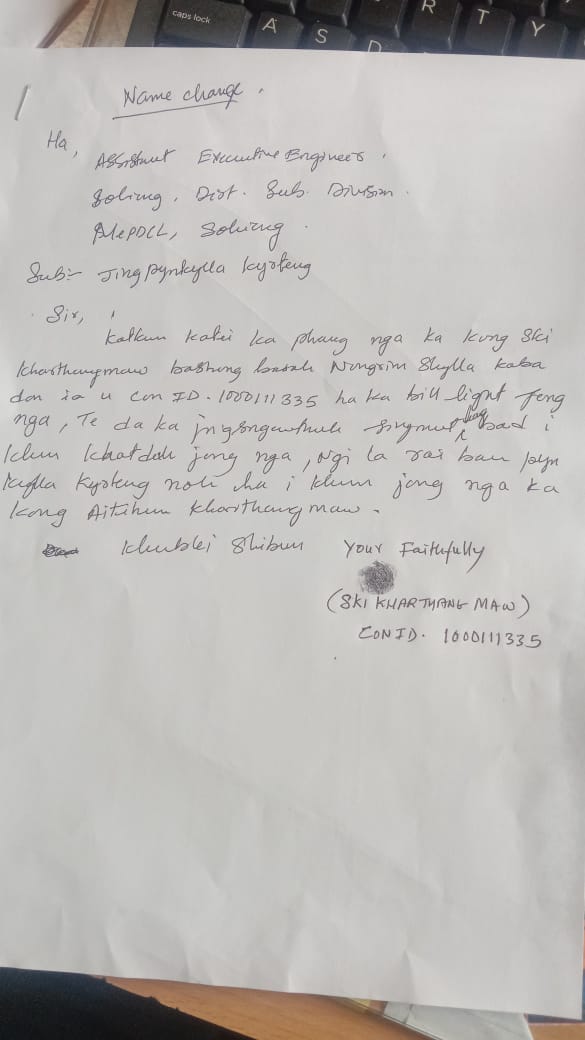 caps lock
A
S
D
R
T
Y
Name change.
Ha,
Assistant Executive Engineer,
Sohiong, Dist. Sub. Division.
MePDCL, Sohiong.
Sub:- Jingpynkylla kyrteng
Sir,
Katkum kane ka phang nga ka kong Ski
Kharthangmaw bashong barah Nongrim Shylla kaba
don ia u Con ID. 1000111335 ha ka bill light jong
nga, Te da ka jingsngewthuh lang bad i
khun khatduh jong nga, ngi la rai ban pyn
kylla kyrteng noh ha i khun jong nga ka
kong Aitihun Kharthangmaw.
Khublei Shibun Your Faithfully
(SKI KHARTHANG MAW)
CON ID. 1000111335